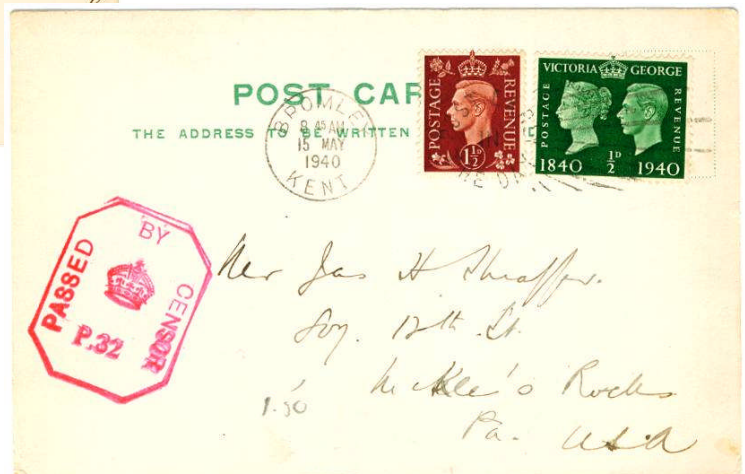 POST CAR
THE ADDRESS TO BE WRITTEN
BROMLEY
8 45 AM
15 MAY
1940
KENT
POSTAGE
REVENUE
1½D
VICTORIA GEORGE
POSTAGE
REVENUE
1840 ½D 1940
PASSED BY CENSOR
P.32
Jas H Sheaffer.
12th St.
McKee's Rocks
Pa. USA
1.50